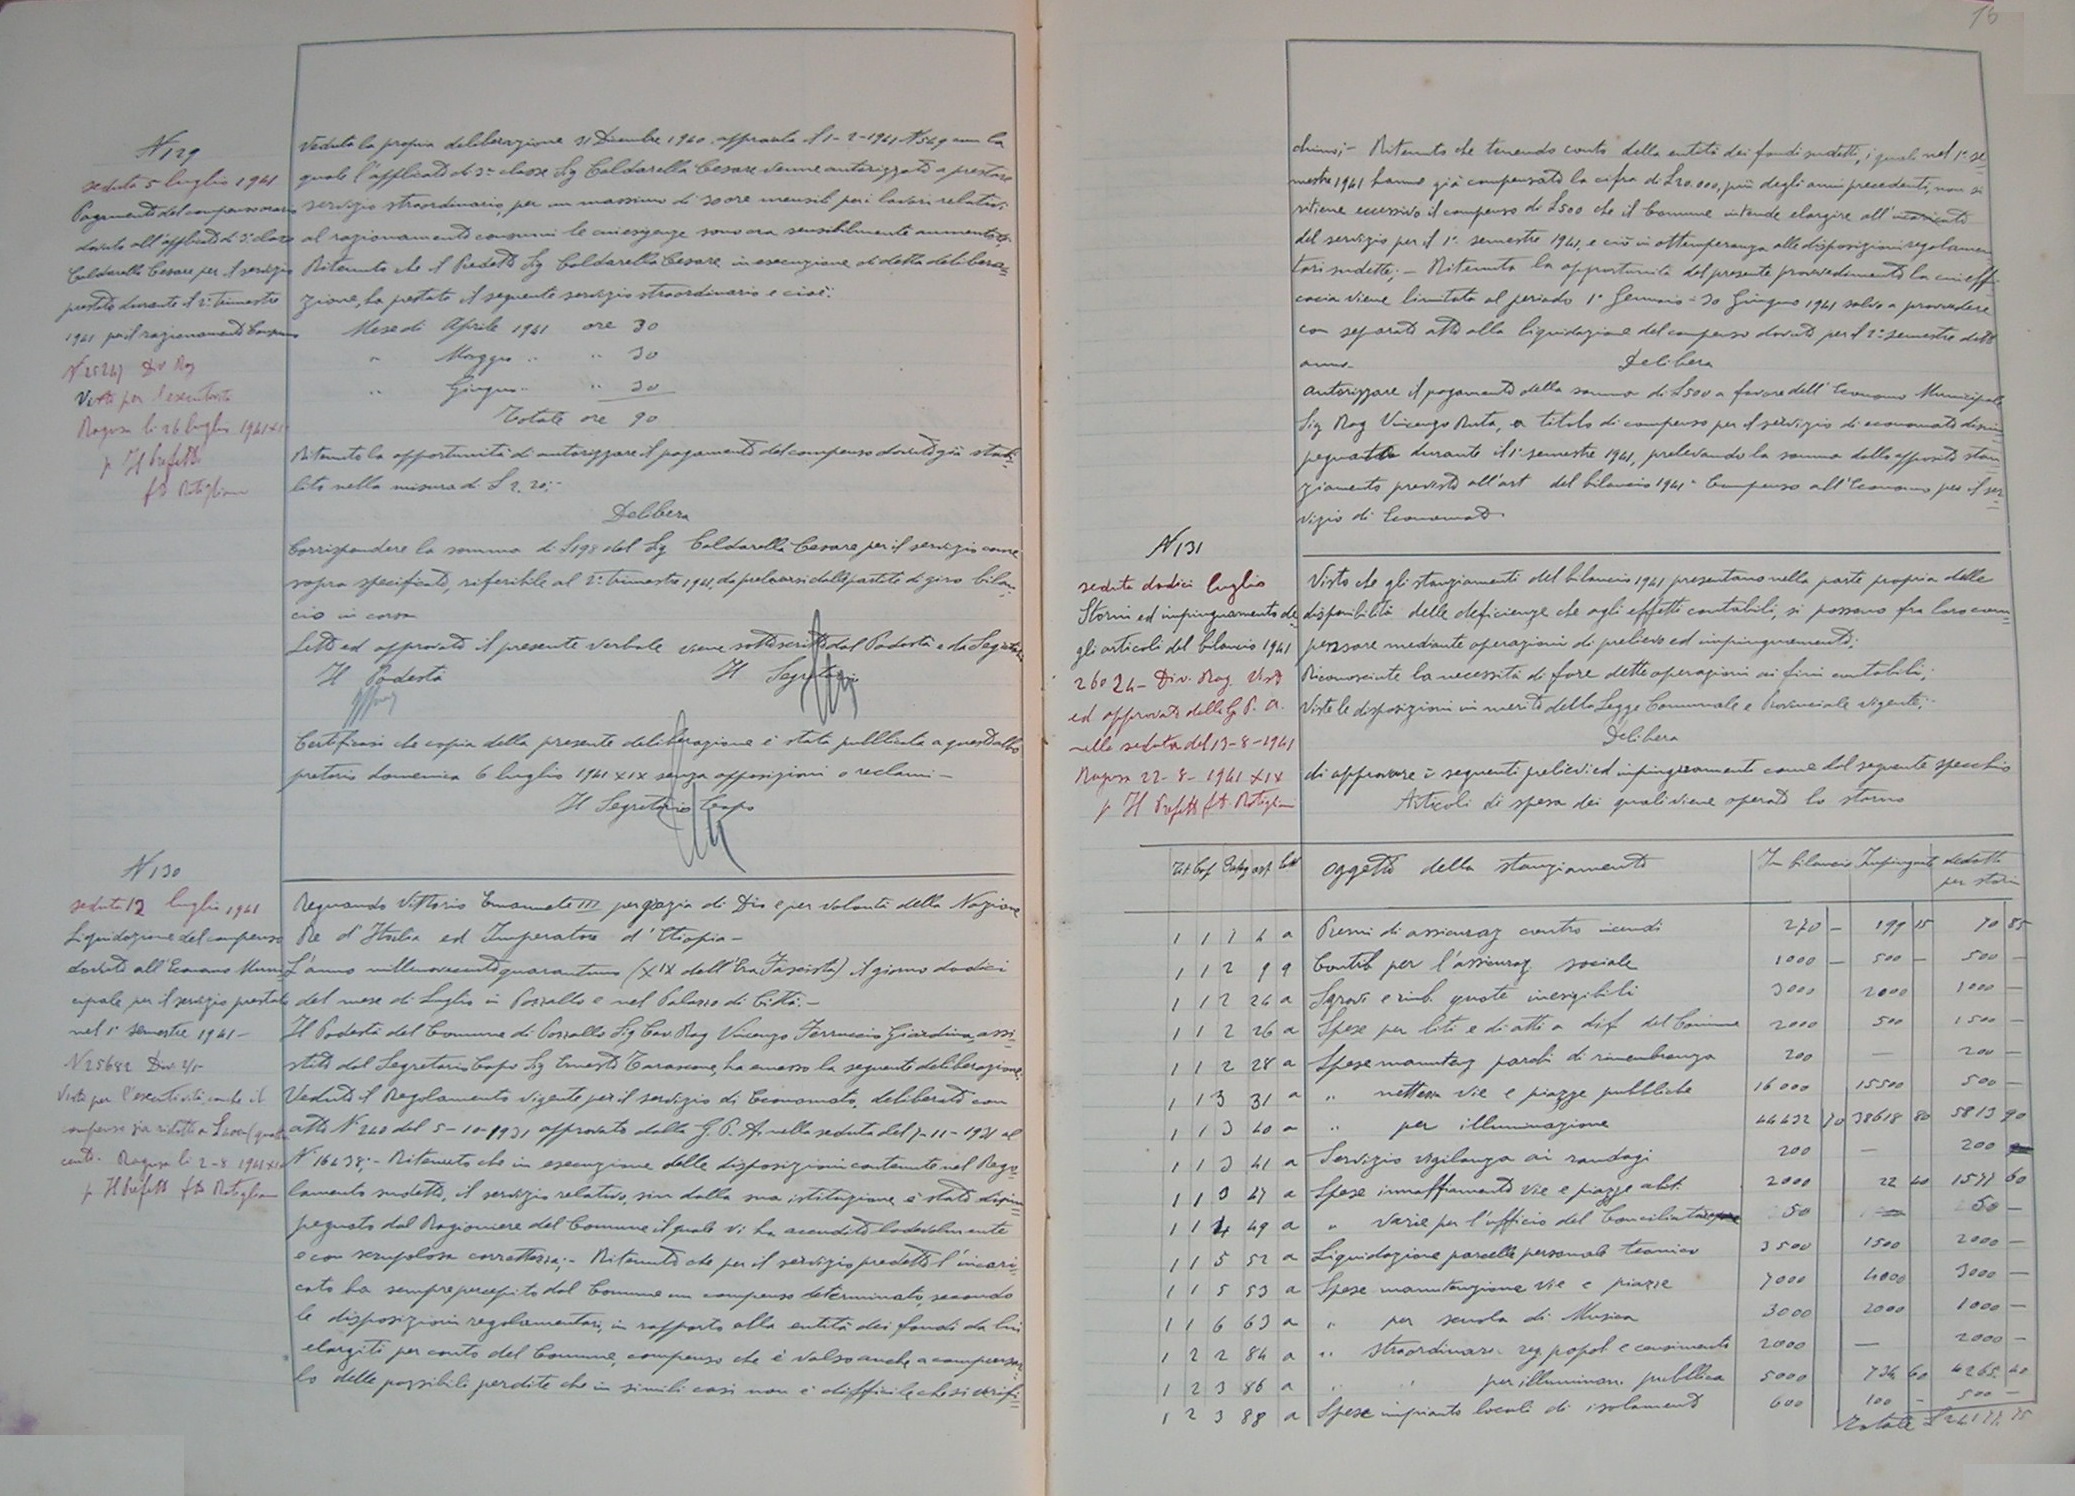 N 129
seduta 5 luglio 1941
Pagamento del compenso orario
dovuto all'applicato di 3ª classe
Caldarella Cesare per il servizio
prestato durante il 2° trimestre
1941 per il razionamento Consumi
N 25247 Div Rag
Visto per l'esecutorietà
Ragusa li 26 luglio 1941 XIX
p Il Prefetto
fto Rotigliano
Veduta la propria deliberazione 21 Dicembre 1940 approvata il 1-2-1941 N 549 con la
quale l'applicato di 3ª classe Sig Caldarella Cesare venne autorizzato a prestare
servizio straordinario, per un massimo di 30 ore mensili per i lavori relativi
al razionamento consumi le cui esigenze sono ora sensibilmente aumentate.
Ritenuto che il Predetto Sig Caldarella Cesare in esecuzione di detta delibera=
zione, ha prestato il seguente servizio straordinario e cioè:
Mese di Aprile 1941 ore 30
" Maggio " " 30
" Giugno " 30
Totale ore 90
Ritenuto la opportunità di autorizzare il pagamento del compenso dovuto già stabi=
lito nella misura di £ 2.20;-
Delibera
Corrispondere la somma di £ 198 al Sig Caldarella Cesare per il servizio come
sopra specificato, riferibile al 2° trimestre 1941, da prelevarsi dalle partite di giro bilan=
cio in corso
Letto ed approvato il presente verbale viene sottoscritto dal Podestà e da Segretario
Il Podestà Il Segretario
Certificasi che copia della presente deliberazione è stata pubblicata a quest'albo
pretorio domenica 6 luglio 1941 XIX senza opposizioni o reclami -
Il Segretario Capo
N 130
seduta 12 luglio 1941
Liquidazione del compenso
dovuto all'Economo Muni
cipale per il servizio prestato
nel 1° semestre 1941 -
N 25682 Div
Visto per l'esecutività, anche il
compenso sia ridotto a £ 400 (quattro
cento. Ragusa li 2-8 1941 XIX
p Il Prefetto fto Rotigliano
Regnando Vittorio Emanuele III per grazia di Dio e per volontà della Nazione
Re d'Italia ed Imperatore d'Etiopia -
L'anno millenovecentoquarantuno (XIX dell'Era Fascista) il giorno dodici
del mese di Luglio in Pozzallo e nel Palazzo di Città. -
Il Podestà del Comune di Pozzallo Sig Cav Rag Vincenzo Ferruccio Giardina, assi=
stito dal Segretario Capo Sig Ernesto Tarascone, ha emesso la seguente deliberazione.
Veduto il Regolamento vigente per il servizio di Economato, deliberato con
atto N 240 del 5-10-1931 approvato dalla G. P. A. nella seduta del 7-11-1931 al
N° 16438;- Ritenuto che in esecuzione delle disposizioni contenute nel Rego=
lamento sudetto, il servizio relativo, sin dalla sua istituzione è stato disim=
pegnato dal Ragioniere del Comune il quale vi ha accudito lodevolmente
e con scrupolosa correttezza;- Ritenuto che per il servizio predetto l'incari=
cato ha sempre percepito dal Comune un compenso determinato, secondo
le disposizioni regolamentari, in rapporto alla entità dei fondi da lui
elargiti per conto del Comune, compenso che è valso anche a compensar=
lo delle possibili perdite che in simili casi non è difficile, che si verifi=
chino;- Ritenuto che tenendo conto della entità dei fondi sudetti, i quali nel 1° se=
mestre 1941 hanno già compensato la cifra di £ 20.000, più degli anni precedenti, non si
ritiene eccessivo il compenso di £ 500 che il Comune intende elargire all'incaricato
del servizio per il 1° semestre 1941, e ciò in ottemperanza alle disposizioni regolamen=
tari sudette; - Ritenuta la opportunità del presente provvedimento la cui effi=
cacia viene limitata al periodo 1° Gennaio - 30 Giugno 1941 salvo a provvedere
con separato atto alla liquidazione del compenso dovuto per il 2° semestre detto
anno.
Delibera
autorizzare il pagamento della somma di £ 500 a favore dell'Economo Municipale
Sig Rag Vincenzo Ruta, a titolo di compenso per il servizio di economato disim=
pegnato durante il 1° semestre 1941, prelevando la somma dallo apposito stan=
ziamento previsto all'art del bilancio 1941 " Compenso all'Economo per il ser=
vizio di Economato
N 131
seduta dodici luglio
Storni ed impinguamento de=
gli articoli del bilancio 1941
26024 - Div. Rag Visto
ed approvato dalla G. P. A.
nella seduta del 13-8-1941
Ragusa 22-8-1941 XIX
p Il Prefetto fto Rotigliano
Visto che gli stanziamenti del bilancio 1941 presentano nella parte propria delle
disponibilità delle deficienze che agli effetti contabili, si possono fra loro com=
pensare mediante operazioni di prelievo ed impinguamento;
Riconosciute la necessità di fare dette operazioni ai fini contabili;
Viste le disposizioni in merito della Legge Comunale e Provinciale vigente;-
Delibera
di approvare i seguenti prelievi ed impinguamento come dal seguente specchio
Articoli di spesa dei quali viene operato lo storno
Tit Cap Categ art Lett oggetto dello stanziamento In bilancio Impinguato dedotti
per storni
1 1 1 4 a Premi di assicuraz contro incendi 270 - 199 15 70 85
1 1 2 9 9 Contrib per l'assicuraz sociale 1000 - 500 - 500 -
1 1 2 24 a Sgravi e rimb. quote inesigibili 3000 2000 1000 -
1 1 2 26 a Spese per liti e di atti a dif. del Comune 2000 500 1500 -
1 1 2 28 a Spese manutenz parchi di rimembranza 200 - 200 -
1 1 3 31 a " nettezza vie e piazze pubbliche 16000 15500 500 -
1 1 3 40 a " per illuminazione 44432 70 38618 80 5813 90
1 1 3 41 a Servizio vigilanza ai randagi 200 - 200
1 1 3 47 a Spese innaffiamento vie e piazze abit. 2000 22 40 1577 60
1 1 4 49 a " varie per l'ufficio del Conciliatore 50 - 50 -
1 1 5 52 a Liquidazione parcelle personale tecnico 3500 1500 2000 -
1 1 5 53 a Spese manutenzione vie e piazze 7000 4000 3000 -
1 1 6 63 a " per scuola di Musica 3000 2000 1000 -
1 2 2 84 a " straordinarie reg. popol e censimento 2000 - 2000 -
1 2 3 86 a " " per illuminaz. pubblica 5000 734 60 4265 40
1 2 3 88 a Spese impianto locali di isolamento 600 100 - 500 -
Totale £ 24177. 75